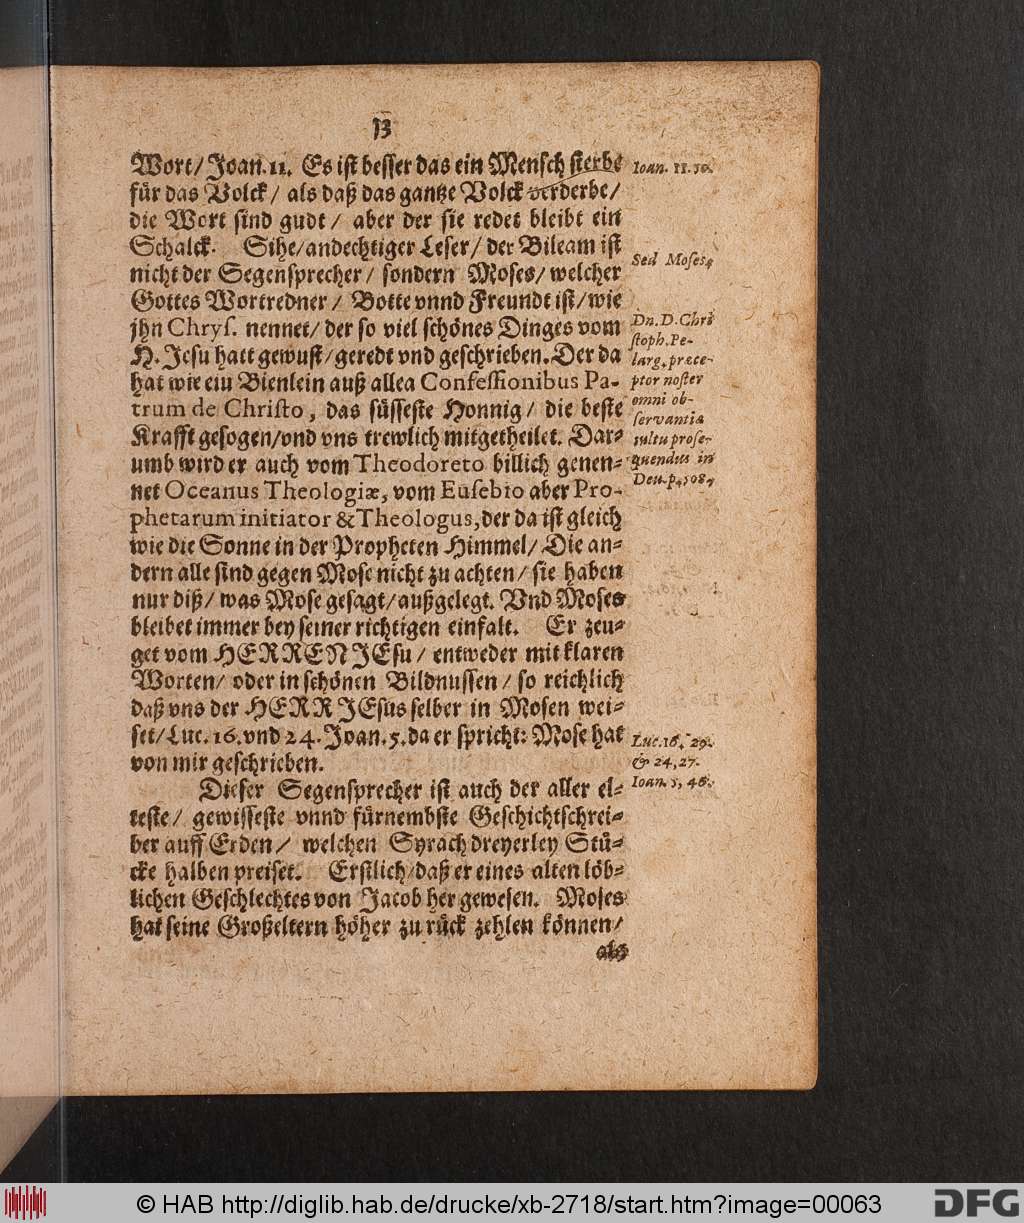 13
Wort/ Joan.11. Es ist besser das ein Mensch sterbe
für das Volck/ als daß das gantze Volck verderbe/
die Wort sind gudt/ aber der sie redet bleibt ein
Schalck. Sihe/andechtiger Leser/ der Bileam ist
nicht der Segensprecher/ sondern Moses/ welcher
Gottes Wortredner/ Botte vnnd Freundt ist/wie
jhn Chrys. nennet/ der so viel schönes Dinges vom
H. Jesu hatt gewust/geredt vnd geschrieben. Der da
hat wie ein Bienlein auß allea Confessionibus Pa-
trum de Christo, das süsseste Honnig/ die beste
Krafft gesogen/vnd vns trewlich mitgetheilet. Dar-
umb wird er auch vom Theodoreto billich genen-
net Oceanus Theologiæ, vom Eusebio aber Pro-
phetarum initiator & Theologus, der da ist gleich
wie die Sonne in der Propheten Himmel/ Die an-
dern alle sind gegen Mose nicht zu achten/ sie haben
nur diß/ was Mose gesagt/außgelegt. Vnd Moses
bleibet immer bey seiner richtigen einfalt. Er zeu-
get vom HERREN JEsu/ entweder mit klaren
Worten/ oder in schönen Bildnussen/ so reichlich
daß vns der HERR JEsus selber in Mosen wei-
set/Luc.16.vnd 24.Joan.5.da er spricht: Mose hat
von mir geschrieben.
Dieser Segensprecher ist auch der aller el-
teste/ gewisseste vnnd fürnembste Geschichtschrei-
ber auff Erden/ welchen Syrach dreyerley Stü-
cke halben preiset. Erstlich/daß er eines alten löb-
lichen Geschlechtes von Jacob her gewesen. Moses
hat seine Großeltern höher zu rück zehlen können/
als
Ioan. 11.50.
Sed Moses,
Dn. D. Chri
stoph. Pe-
larg, præce-
ptor noster
omni ob-
servantia
cultu prose-
quendus in
Deu. p.
Luc.16, 29.
& 24,27.
Ioan. 5, 46.
© HAB http://diglib.hab.de/drucke/xb-2718/start.htm?image=00063
DFG